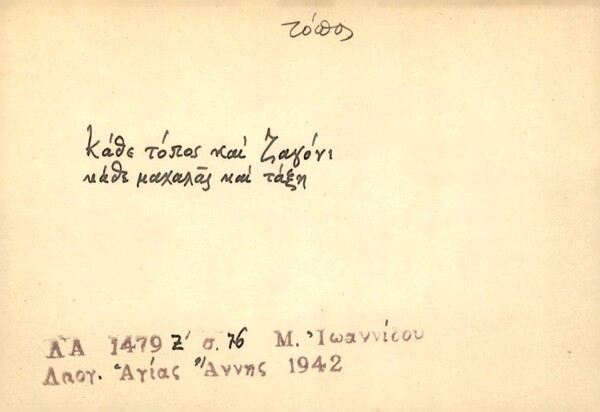 τόπος
Κάθε τόπος καί ζαγόνι
κάθε μαχαλᾶς καί τάξη
ΛΑ 1479 Ζ' σ. 76 Μ. Ἰωαννίδου
Λαογ. Ἁγίας Ἄννης 1942